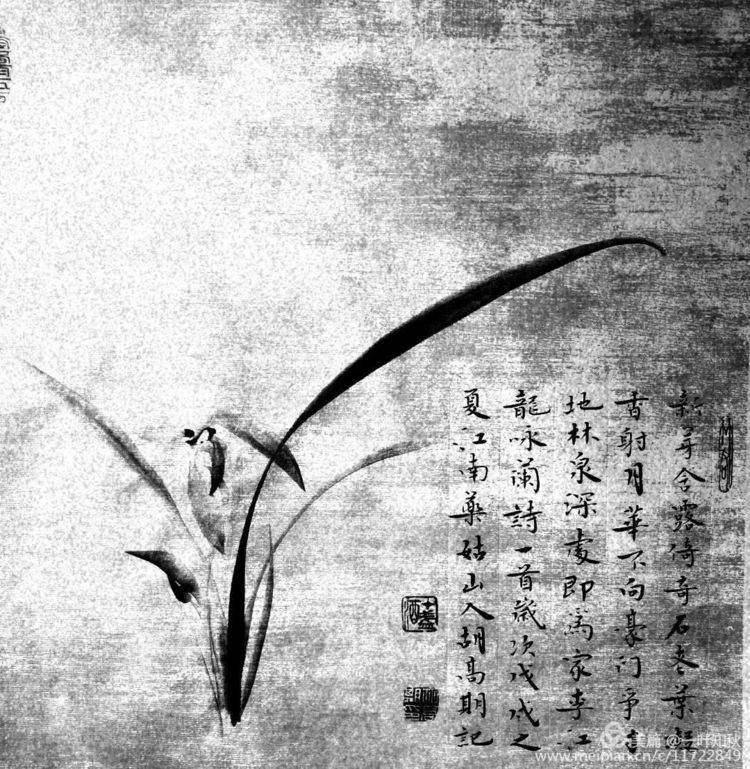 新芽含露倚奇石冬葉
香射月華不向豪门争
地林泉深處即爲家李江
龍咏蘭詩一首歲次戊戌之
夏江南藥姑山人胡高期記
美篇 @一叶知秋
www.meipian.cn/c/11722849